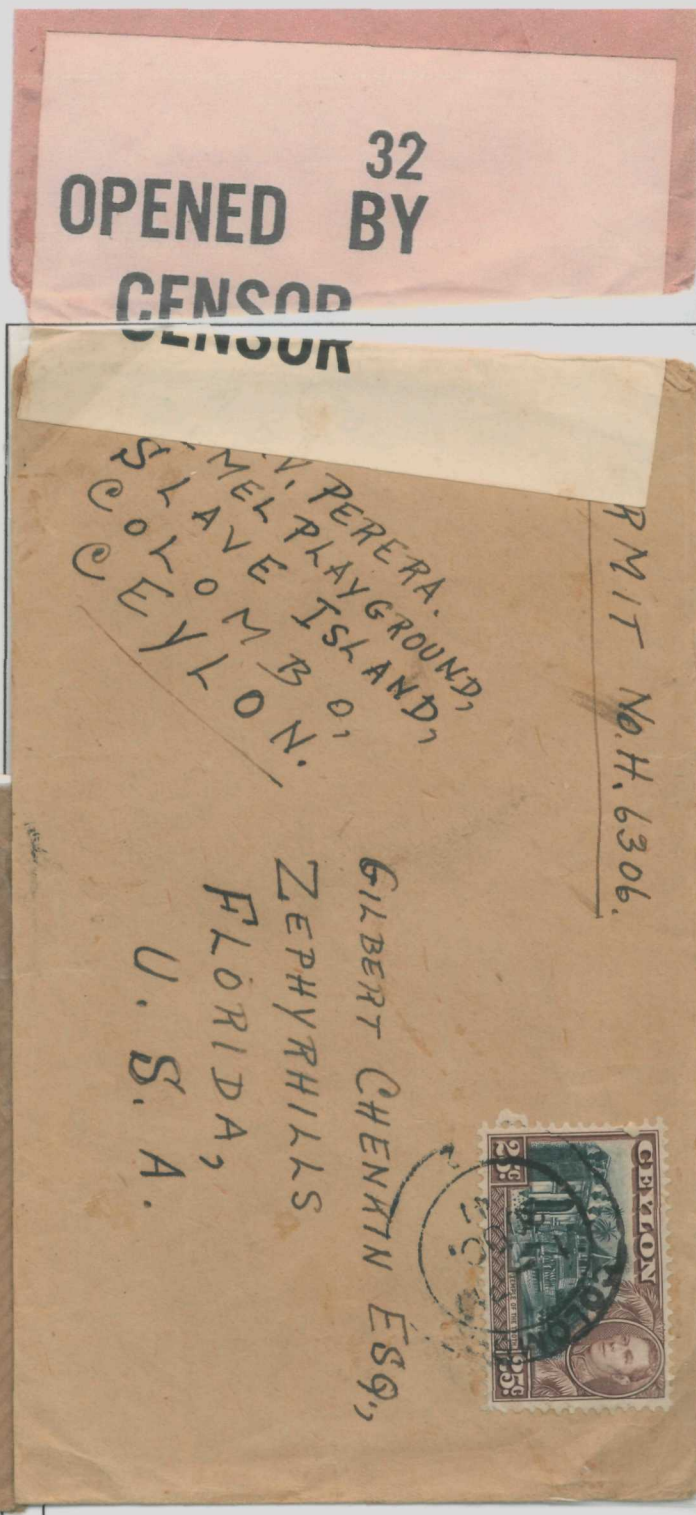 32
OPENED BY
CENSOR
CENSOR
V. PERERA.
MEL PLAYGROUND,
SLAVE ISLAND,
COLOMBO,
CEYLON.
RMIT No. H. 6306.
GILBERT CHENKIN ESQ.,
ZEPHYRHILLS
FLORIDA,
U. S. A.
CEYLON
25c 25c
COLOM